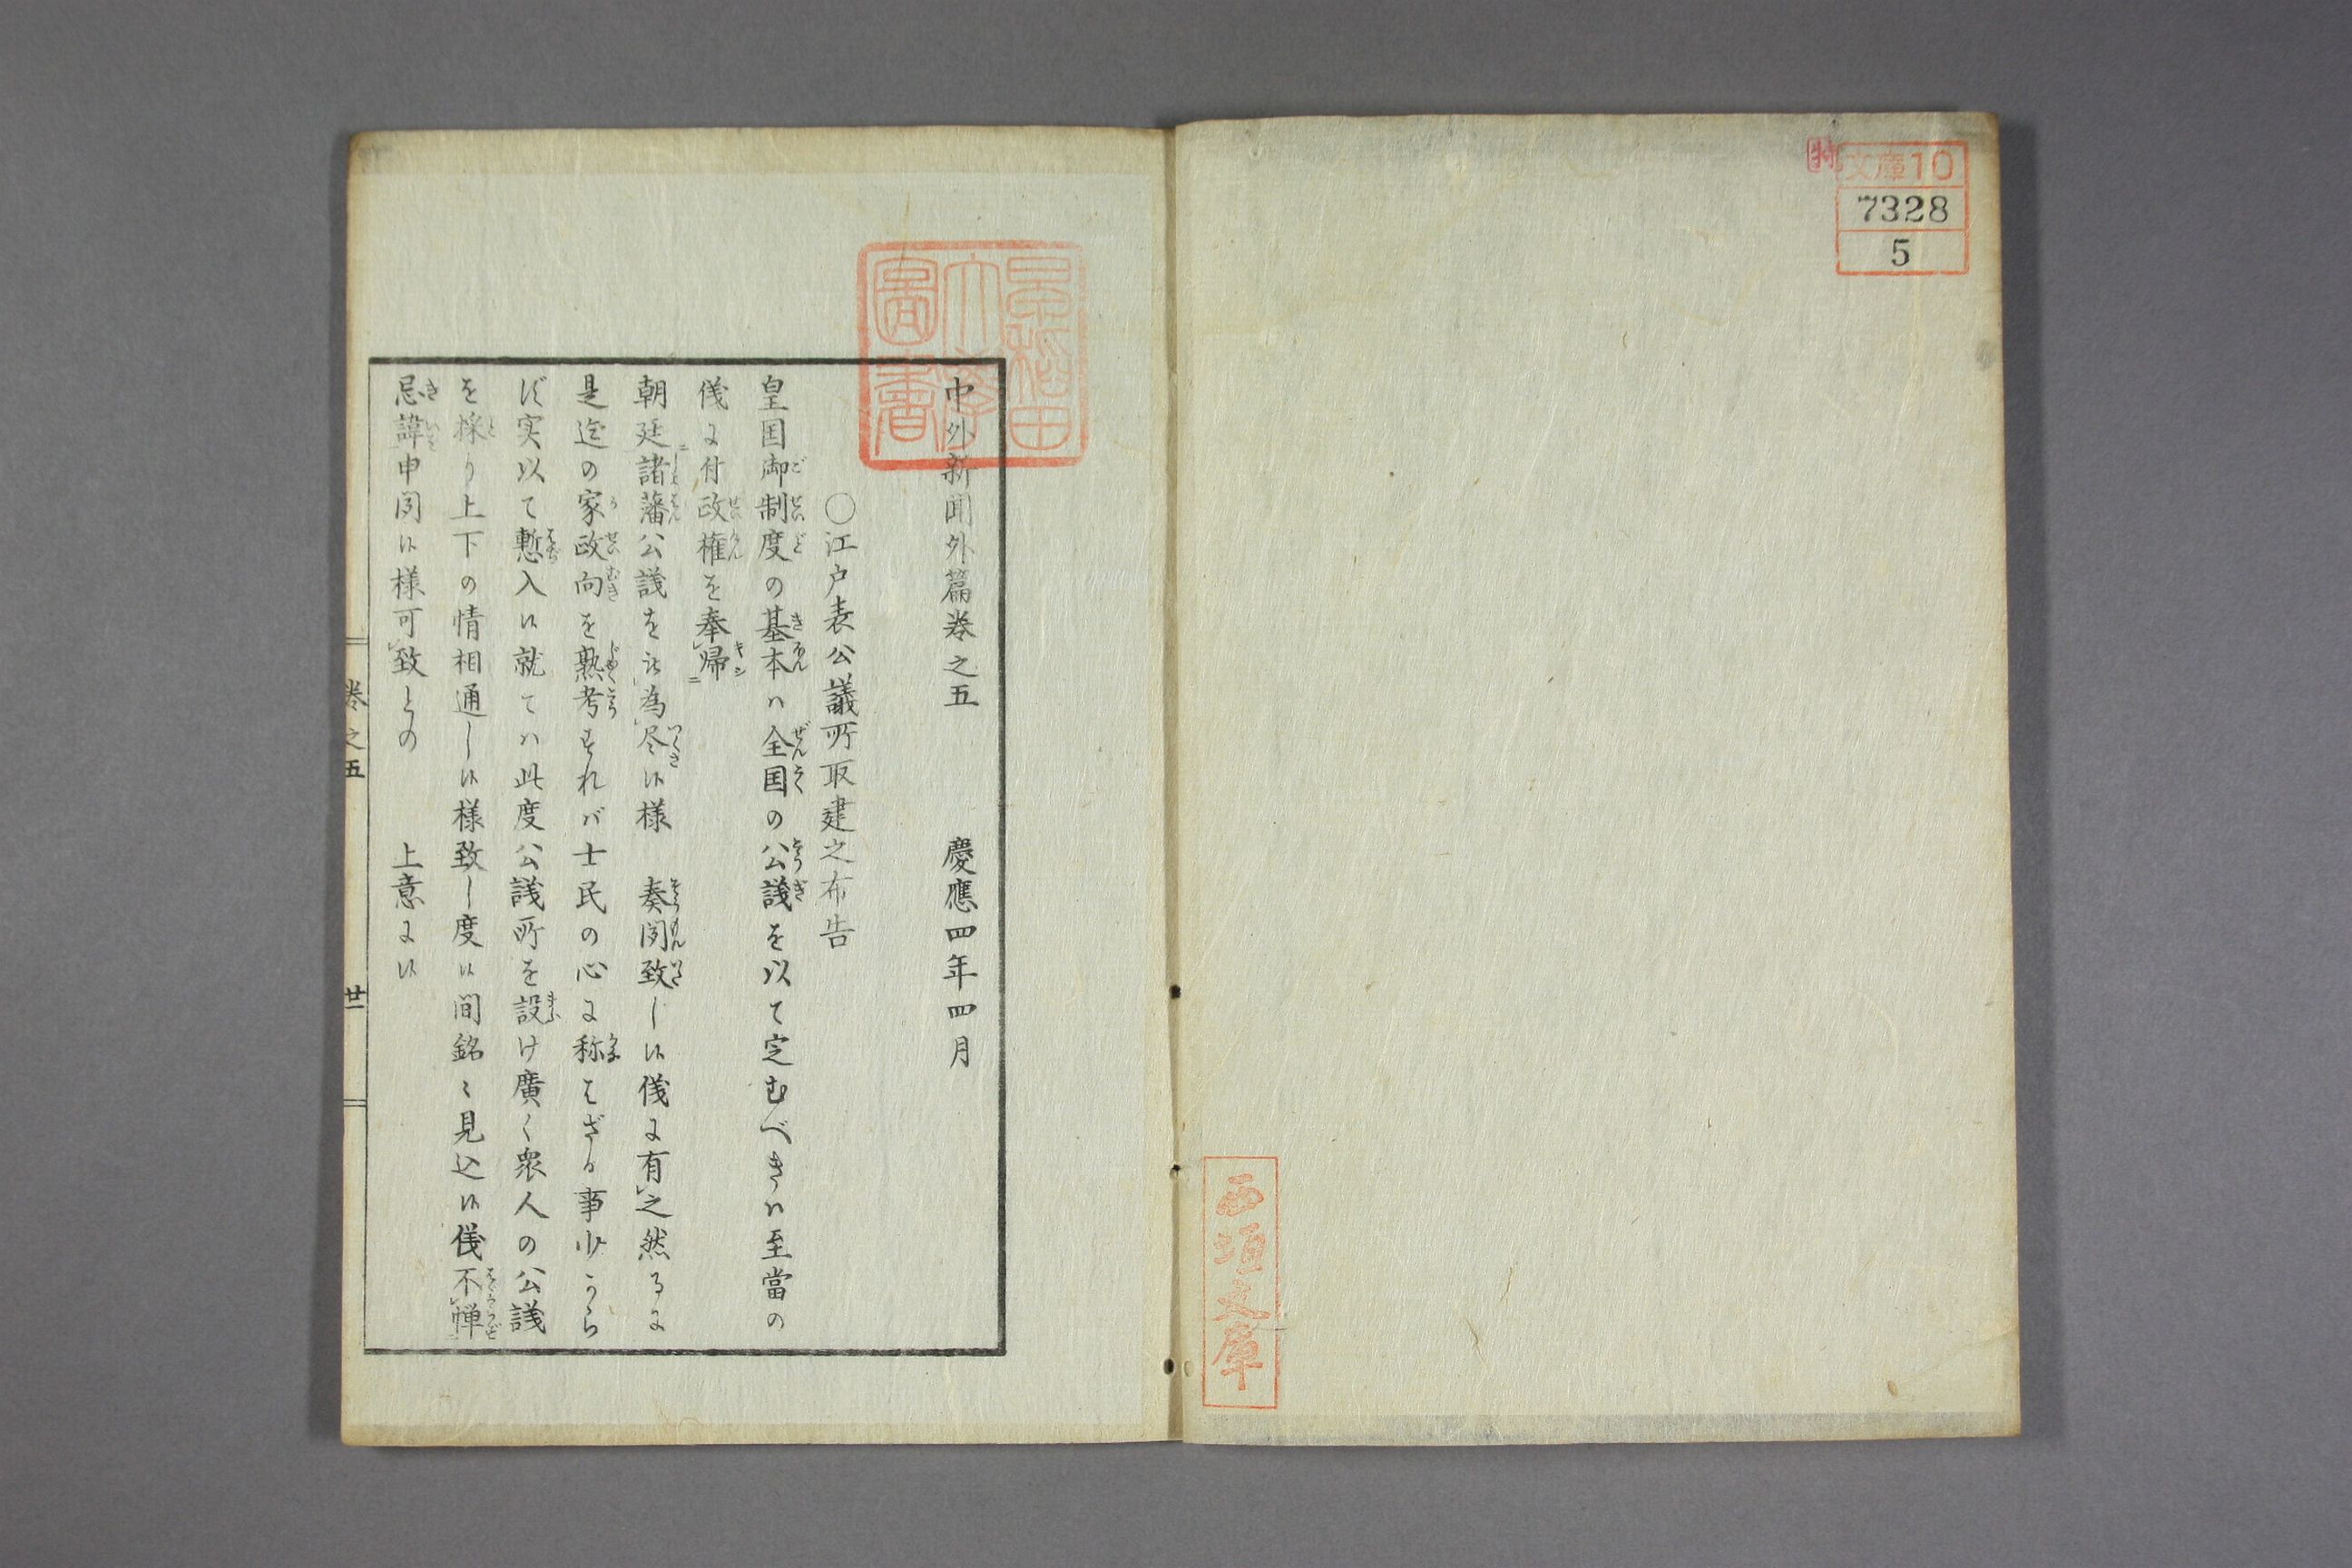 特
文庫10
7328
5
西垣文庫
早稲田
大學
圖書
中外新聞外篇巻之五　慶應四年四月
〇江戸表公議所取建之布告
皇国御制度の基本ハ全国の公議を以て定むべきハ至當の
儀に付政権を奉レ帰ニ
朝廷諸藩公議を被レ為レ尽候様　奏聞致し候儀に有レ之然るに
是迄の家政向を熟考すれバ士民の心に称はざる事少からず
実以て慙入候就てハ此度公議所を設け廣く衆人の公議
を採り上下の情相通し候様致し度候間銘々見込候儀不レ憚ニ
忌諱申聞候様可レ致との　上意に候
巻之五
廿一